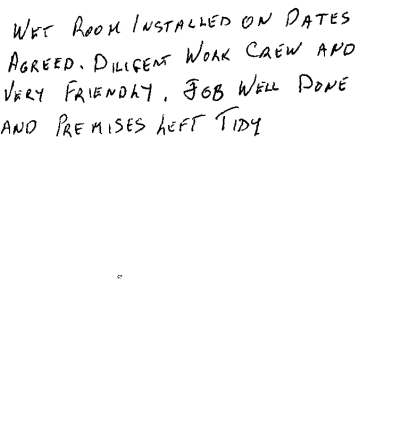 WET ROOM INSTALLED ON DATES
AGREED. DILIGENT WORK CREW AND
VERY FRIENDLY. JOB WELL DONE
AND PREMISES LEFT TIDY